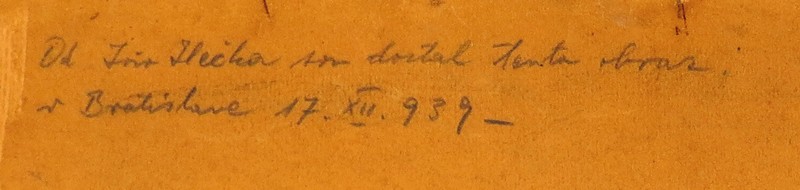 Od Ivo Ilečka som dostal tento obraz.
v Bratislave 17. XII. 939 —